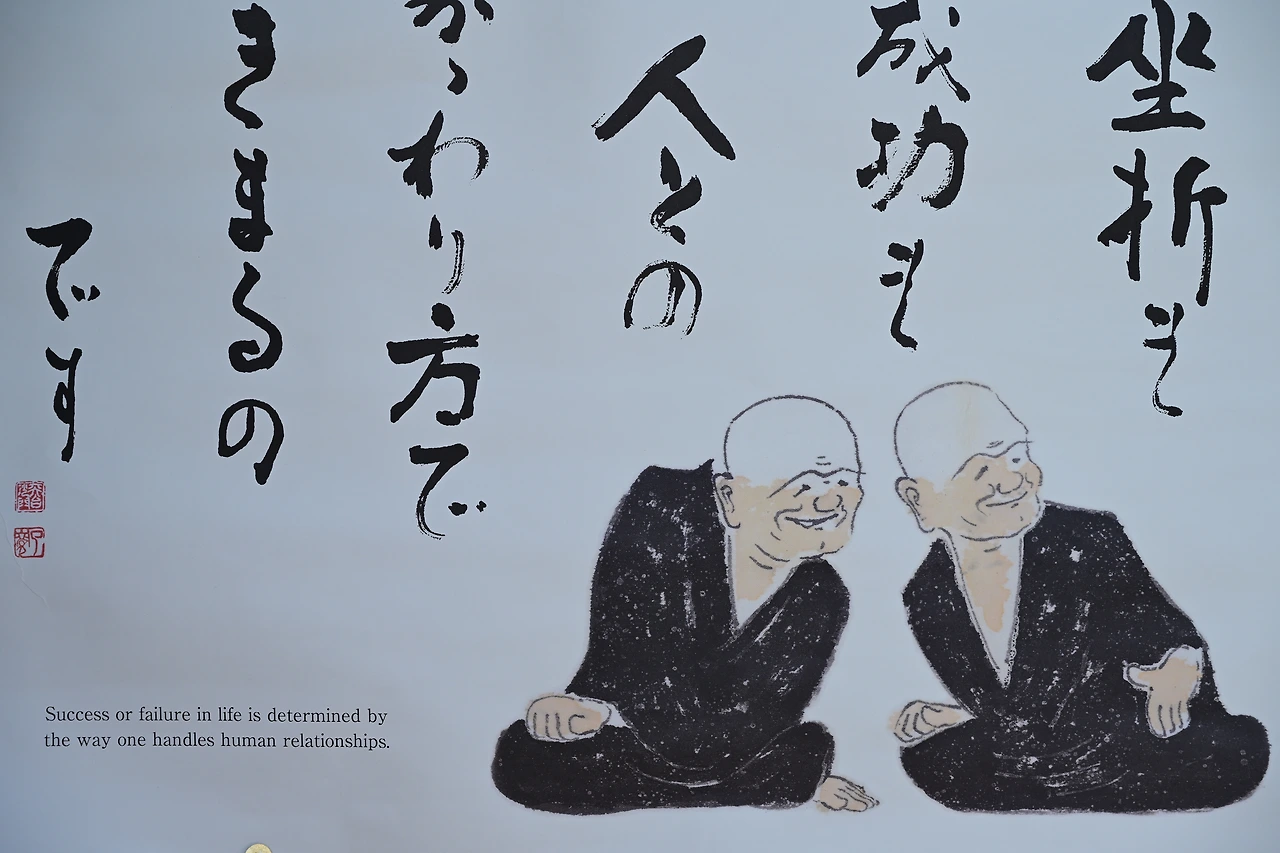 坐折も
成功も
人との
かゝわり方で
きまるの
です
Success or failure in life is determined by
the way one handles human relationships.